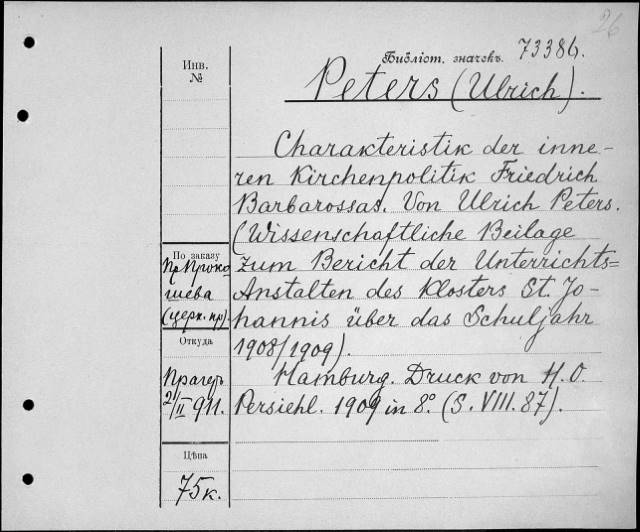 26
Инв.
№
Библіот. значекъ. 73386.
Peters (Ulrich).
Charakteristik der inne-
ren Kirchenpolitik Friedrich
Barbarossas. Von Ulrich Peters.
(Wissenschaftliche Beilage
zum Bericht der Unterrichts=
Anstalten des Klosters St. Jo-
hannis über das Schuljahr
1908/1909).
Hamburg. Druck von H.O.
Persiehl. 1909 in 8º. (S. VIII. 87).
По заказу
Пр. Проко
шева
(церк. пр).
Откуда
Прагеръ
21/II 911.
Цѣна
75к.